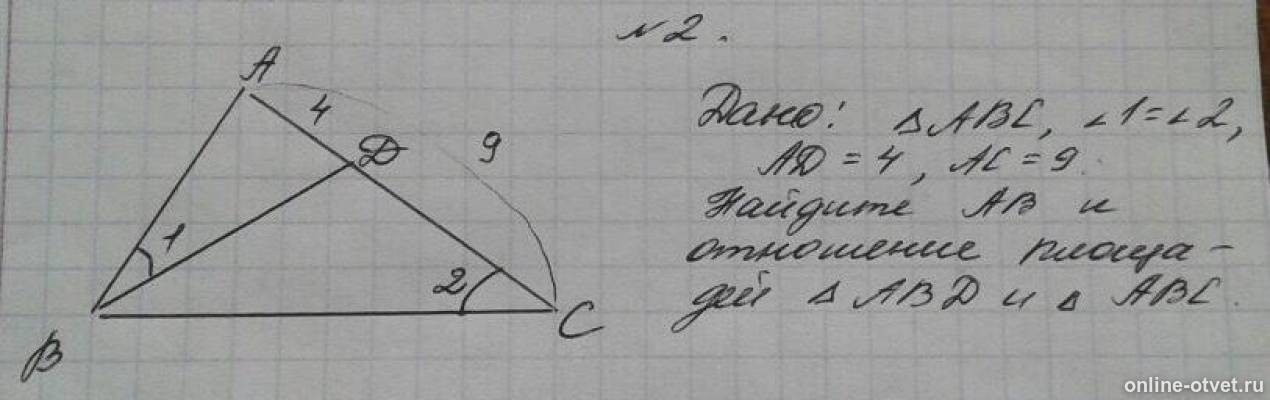 N2.
A
4
D
9
1
2
B
C
Дано: △ABC, ∠1=∠2,
AD = 4, AC = 9.
Найдите AB и
отношение площа-
дей △ ABD и △ ABC.
online-otvet.ru